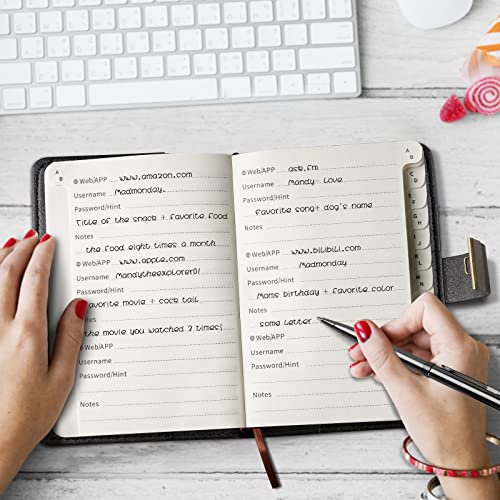 A
B
Web/APP www.amazon.com
Username Madmonday
Password/Hint
Title of the snack + favorite food
Notes
the food eight times a month
Web/APP www.apple.com
Username Mandytheexplorer01
Password/Hint
Favorite movie + cock tail
Notes
the movie you watched 3 times!
Web/APP
Username
Password/Hint
Notes
A
B
Web/APP ask.fm
Username Mandy love
Password/Hint
favorite song+ dog's name
Notes
Web/APP www.bilibili.com
Username Madmonday
Password/Hint
Moms birthday + favorite color
Notes
some letter
Web/APP
Username
Password/Hint
Notes
C
D
G
H
J
L
M